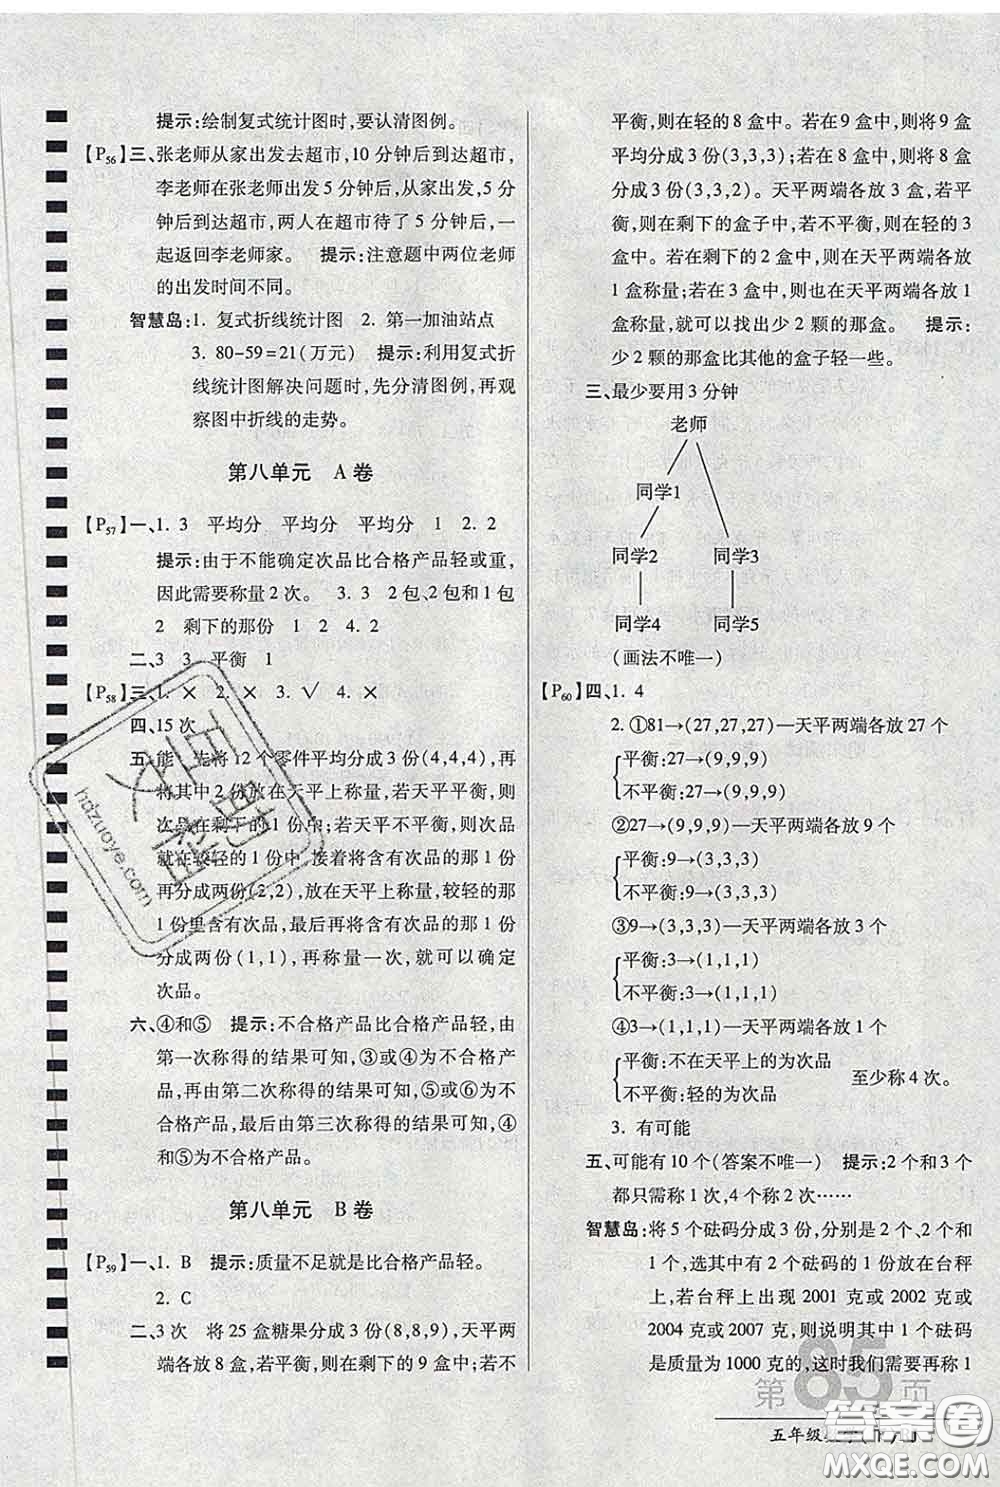 提示:绘制复式统计图时,要认清图例。
【P56】三、张老师从家出发去超市,10 分钟后到达超市,
李老师在张老师出发 5 分钟后,从家出发,5 分
钟后到达超市,两人在超市待了 5 分钟后,一
起返回李老师家。 提示:注意题中两位老师
的出发时间不同。
智慧岛:1. 复式折线统计图 2. 第一加油站点
3. 80-59=21(万元) 提示:利用复式折
线统计图解决问题时,先分清图例,再观
察图中折线的走势。
第八单元 A 卷
【P57】一、1. 3 平均分 平均分 平均分 1 2. 2
提示:由于不能确定次品比合格产品轻或重,
因此需要称量 2 次。 3. 3 2 包、2 包和 1 包
2 剩下的那份 1 2 4. 2
二、3 3 平衡 1
【P58】三、1. × 2. × 3. √ 4. ×
四、15 次
五、能 先将 12 个零件平均分成 3 份(4,4,4),再
将其中 2 份放在天平上称量,若天平平衡,则
次品在剩下的 1 份中;若天平不平衡,则次品
就在较轻的 1 份中,接着将含有次品的那 1 份
再分成两份(2,2),放在天平上称量,较轻的那
1 份里含有次品,最后再将含有次品的那 1 份
分成两份(1,1),再称量一次,就可以确定
次品。
六、④和⑤ 提示:不合格产品比合格产品轻,由
第一次称得的结果可知,③或④为不合格产
品,再由第二次称得的结果可知,⑤或⑥为不合
格产品,最后由第三次称得的结果可知,④
和⑤为不合格产品。
第八单元 B 卷
【P59】一、1. B 提示:质量不足就是比合格产品轻。
2. C
二、3 次 将 25 盒糖果分成 3 份(8,8,9),天平两
端各放 8 盒,若平衡,则在剩下的 9 盒中;若不
平衡,则在轻的 8 盒中。若在 9 盒中,则将 9 盒
平均分成 3 份(3,3,3);若在 8 盒中,则将 8 盒
分成 3 份(3,3,2)。天平两端各放 3 盒,若平
衡,则在剩下的盒子中,若不平衡,则在轻的 3
盒中。若在剩下的 2 盒中,则在天平两端各放
1 盒称量;若在 3 盒中,则也在天平两端各放 1
盒称量,就可以找出少 2 颗的那盒。 提示:
少 2 颗的那盒比其他的盒子轻一些。
三、最少要用 3 分钟
老师
同学1
同学2 同学3
同学4 同学5
(画法不唯一)
【P60】四、1. 4
2. ①81→(27,27,27)—天平两端各放 27 个
平衡:27→(9,9,9)
不平衡:27→(9,9,9)
②27→(9,9,9)—天平两端各放 9 个
平衡:9→(3,3,3)
不平衡:9→(3,3,3)
③9→(3,3,3)—天平两端各放 3 个
平衡:3→(1,1,1)
不平衡:3→(1,1,1)
④3→(1,1,1)—天平两端各放 1 个
平衡:不在天平上的为次品
不平衡:轻的为次品
至少称 4 次。
3. 有可能
五、可能有 10 个(答案不唯一) 提示:2 个和 3 个
都只需称 1 次,4 个称 2 次……
智慧岛:将 5 个砝码分成 3 份,分别是 2 个、2 个和
1 个,选其中有 2 个砝码的 1 份放在台秤
上,若台秤上出现 2001 克或 2002 克或
2004 克或 2007 克,则说明其中 1 个砝码
是质量为 1000 克的,这时我们需要再称 1
第85页
五年级
答案卷
MXQE.COM
hdzuoye.com